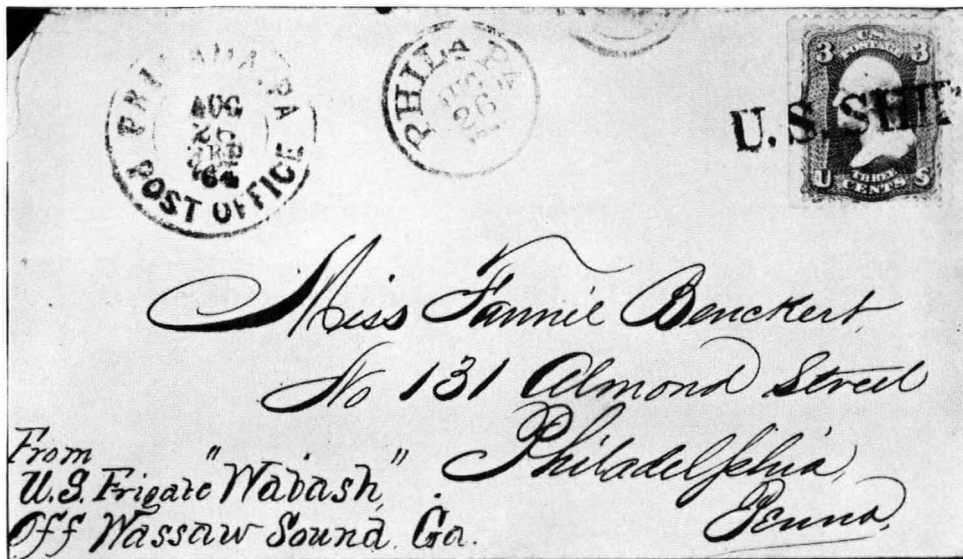 PHILADA. PA.
AUG
'64
POST OFFICE
PHILA PA.
26
3 U.S. 3
POSTAGE
U THREE S
CENTS
U.S. SHIP
Miss Fannie Benckert,
No 131 Almond Street
Philadelphia,
Penna,
From
U.S. Frigate "Wabash"
Off Wassaw Sound, Ga.